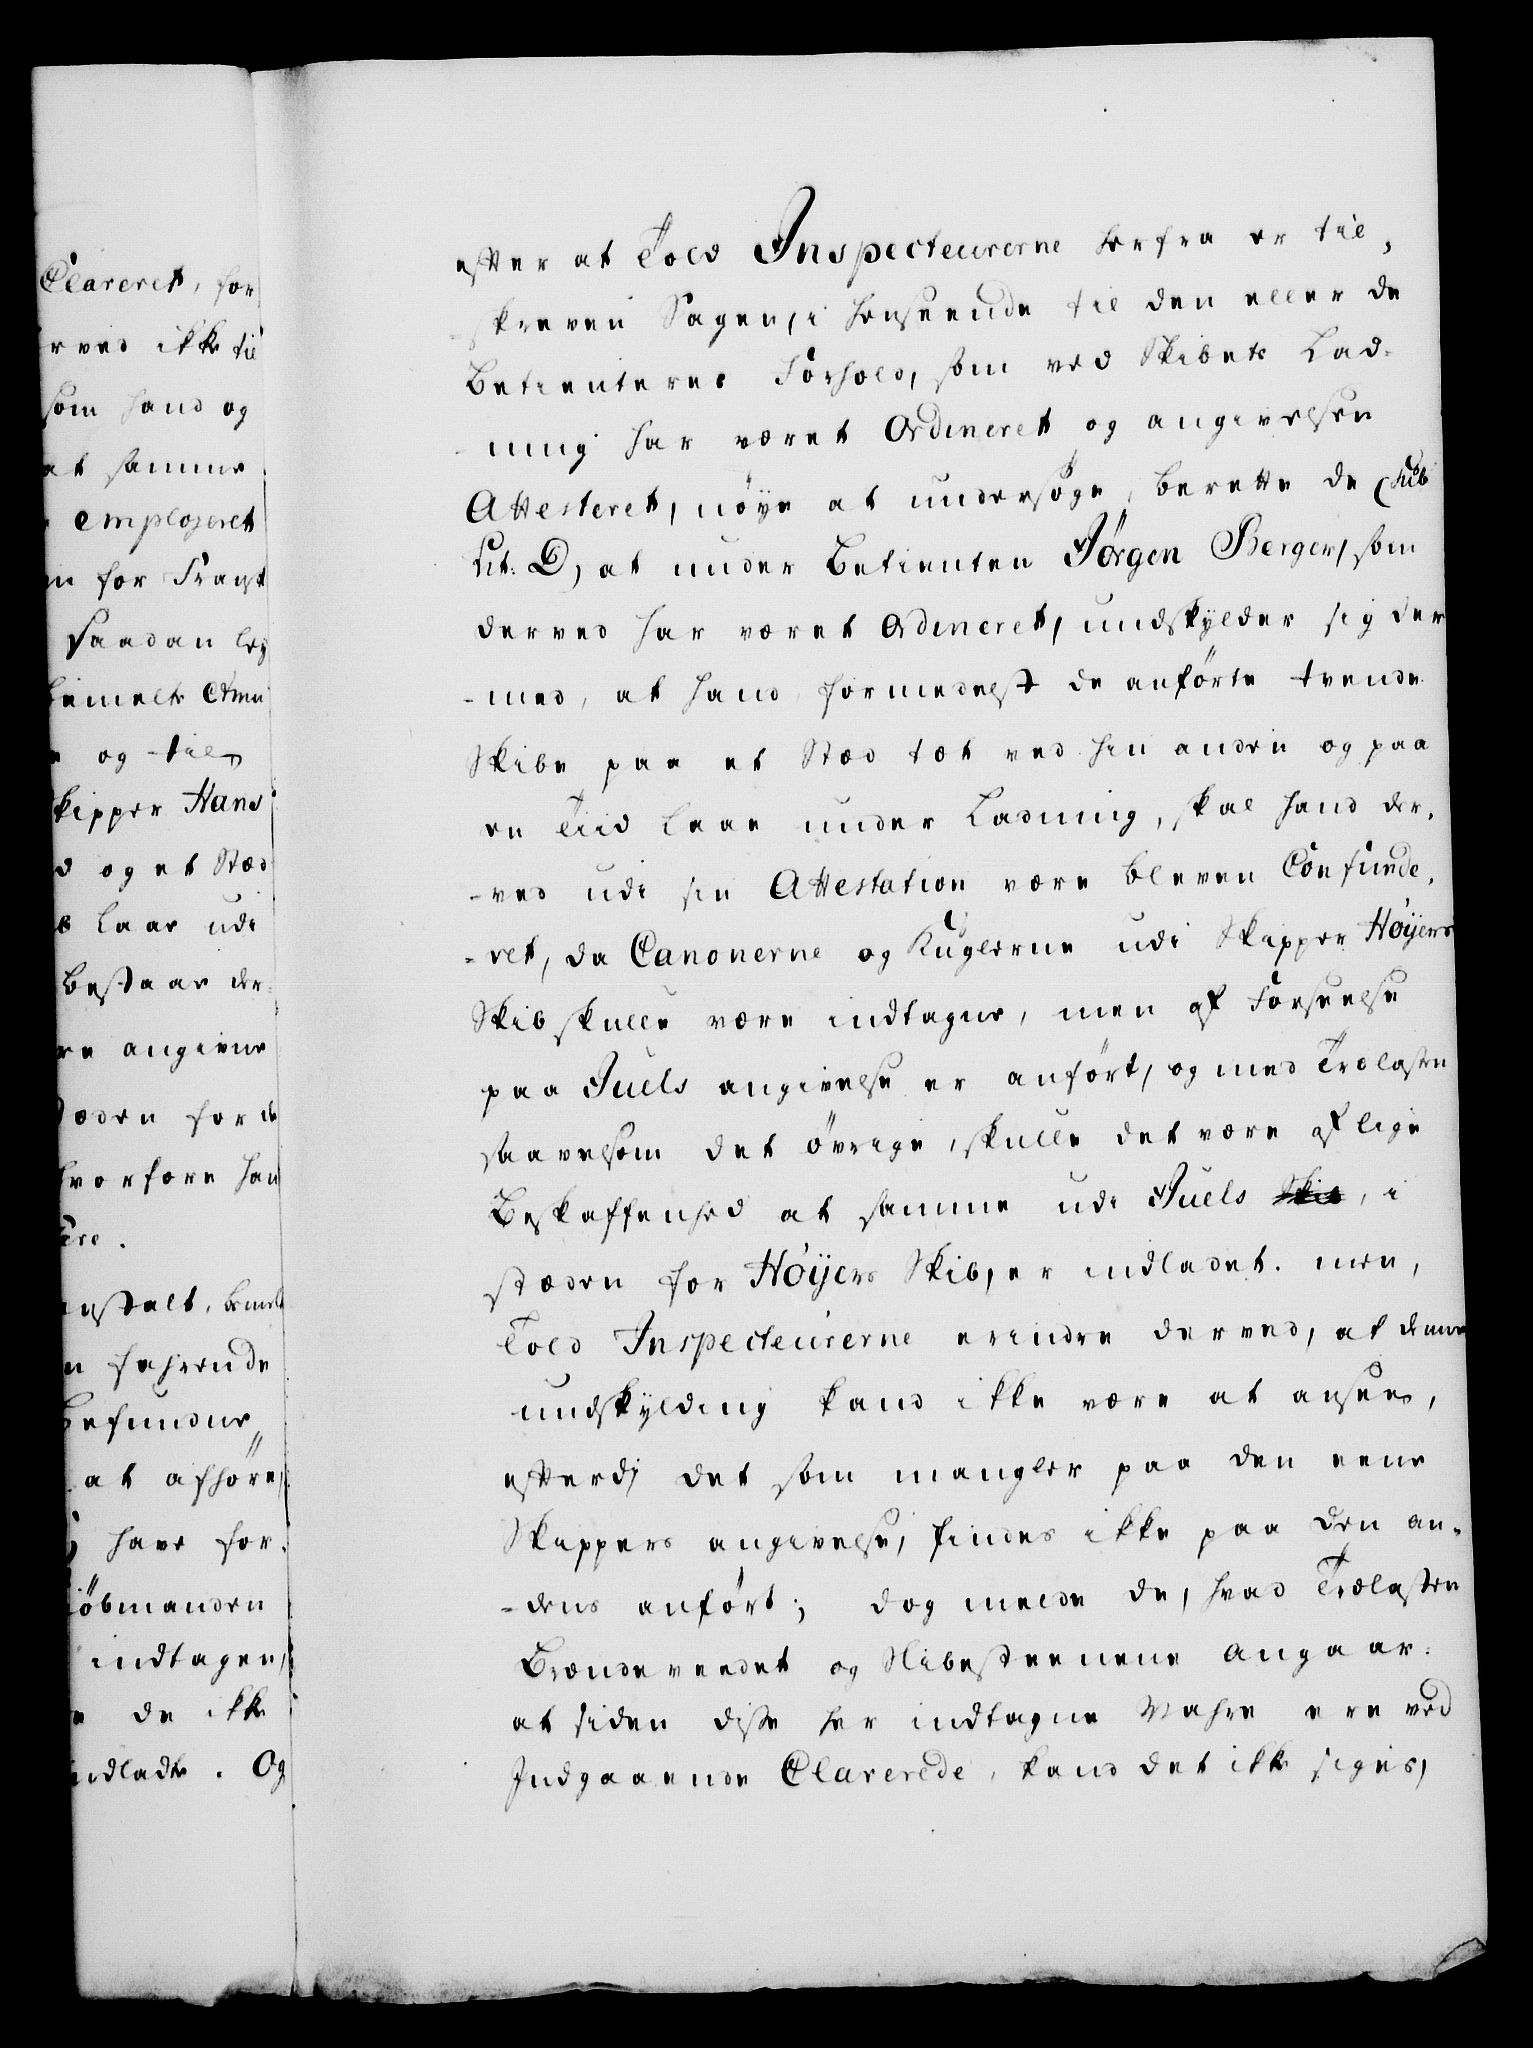 Clareret, for
rved ikke til
som hand og
at samme
employeret
n for Fragt
saadan leg
bemelte
og til
kipper Hans
d og et Stæd
laae udi
bestaar der-
re angivne
tæden for de
hvorfore han
ere.
nstalt, bemelt
n farende
befundne
at afhøre,
have for-
iöbmanden
indtagen,
de ikke
indladte. Og
efter at Told Inspecteurerne herfra er til-
skreven Sagen, i henseende til den eller de
Betienteres Forhold, som ved Skibets Lad-
ning har været Ordineret og angivelsen
Attesteret, nöye at undersöge, berette de (sub
Lit: D) at under Betienten Jørgen Berger, som
derved har været Ordineret, undskylder sig der
-med, at hand formedelst de anförte tvende
Skibe paa et Stæd tæt ved hin anden og paa
en Tiid laae under Ladning, skal hand der-
-ved udi sin Attestation være bleven Confunde-
-ret, da Canonerne og Kuglerne udi Skipper Høÿers
Skib skulle være indtagne, men af Forseelse
paa Juels angivelse er anfört, og med Trælasten
saavelsom det övrige, skulle det være af lige
Beskaffenhed at samme udi Juels Skib, i
stæden for Høÿers Skib, er indladet. men,
Told Inspecteurerne erindre derved, at denne
undskylding kand ikke være at ansee,
efterdj det som mangler paa den eene
Skippers angivelse, findes ikke paa den an-
-dens anfört; dog meene de, hvad Trælasten
Brændeveedet og Slibesteenene angaar:
at siden disse her indtagne Vahre ere ved
Indgaaende Clarerede, kand det ikke siges,